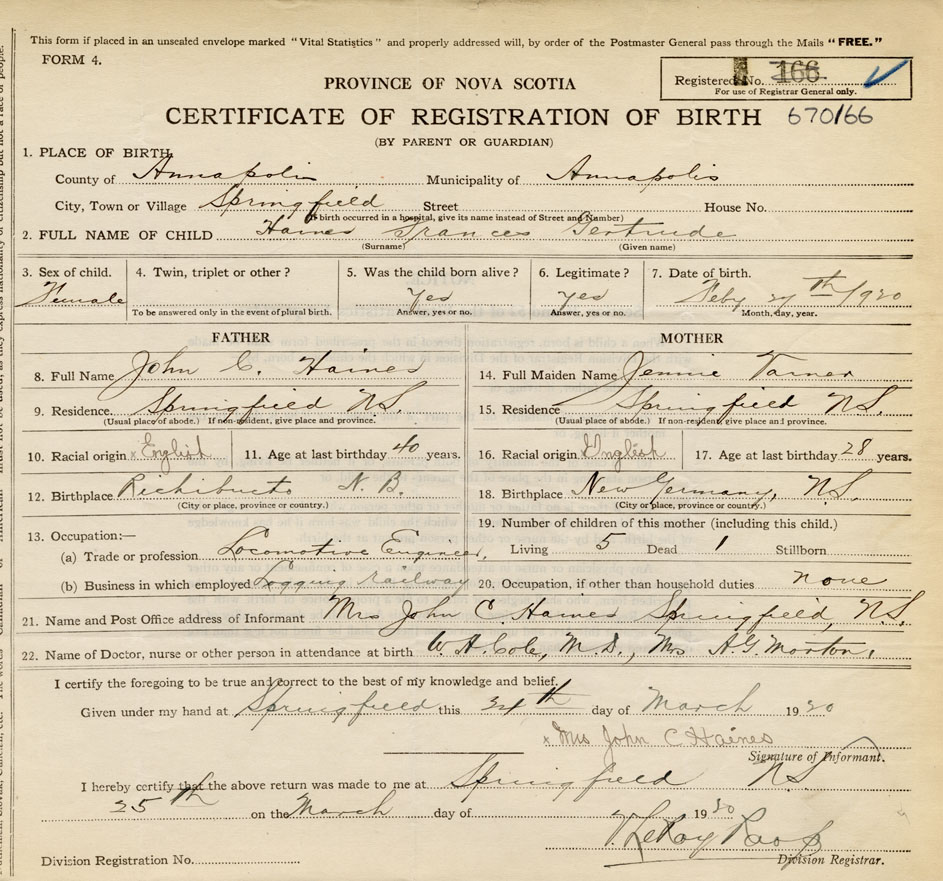 This form if placed in an unsealed envelope marked "Vital Statistics" and properly addressed will, by order of the Postmaster General pass through the Mails "FREE."
FORM 4.
Registered No. 166
For use of Registrar General only.
PROVINCE OF NOVA SCOTIA
CERTIFICATE OF REGISTRATION OF BIRTH 670166
(BY PARENT OR GUARDIAN)
1. PLACE OF BIRTH
County of Annapolis Municipality of Annapolis
City, Town or Village Springfield Street House No.
(If birth occurred in a hospital, give its name instead of Street and Number)
2. FULL NAME OF CHILD Haines Frances Gertrude
(Surname) (Given name)
3. Sex of child. 4. Twin, triplet or other? 5. Was the child born alive? 6. Legitimate? 7. Date of birth.
Female Yes Yes Feby 27th /1920
To be answered only in the event of plural birth. Answer, yes or no. Answer, yes or no. Month, day, year.
FATHER MOTHER
8. Full Name John C. Haines 14. Full Maiden Name Jennie
9. Residence. Springfield N.S. 15. Residence Springfield N.S.
(Usual place of abode.) If non-resident, give place and province. (Usual place of abode.) If non-resident, give place and province.
10. Racial origin x English 11. Age at last birthday 40 years. 16. Racial origin English 17. Age at last birthday 28 years.
12. Birthplace Richibucto N.B. 18. Birthplace New Germany, N.S.
(City or place, province or country.) (City or place, province or country.)
13. Occupation:— 19. Number of children of this mother (including this child.)
(a) Trade or profession Locomotive Engineer, Living 5 Dead 1 Stillborn
(b) Business in which employed Logging railway 20. Occupation, if other than household duties none
21. Name and Post Office address of Informant Mrs John C. Haines Springfield, N.S.
22. Name of Doctor, nurse or other person in attendance at birth W. H. Cole, M.D., Mrs A.G. Morton,
I certify the foregoing to be true and correct to the best of my knowledge and belief.
Given under my hand at Springfield this 24th day of March 1920
x Mrs John C Haines
Signature of Informant.
I hereby certify that the above return was made to me at Springfield N.S.
25th on the March day of 1920
LeRoy
Division Registration No. Division Registrar.